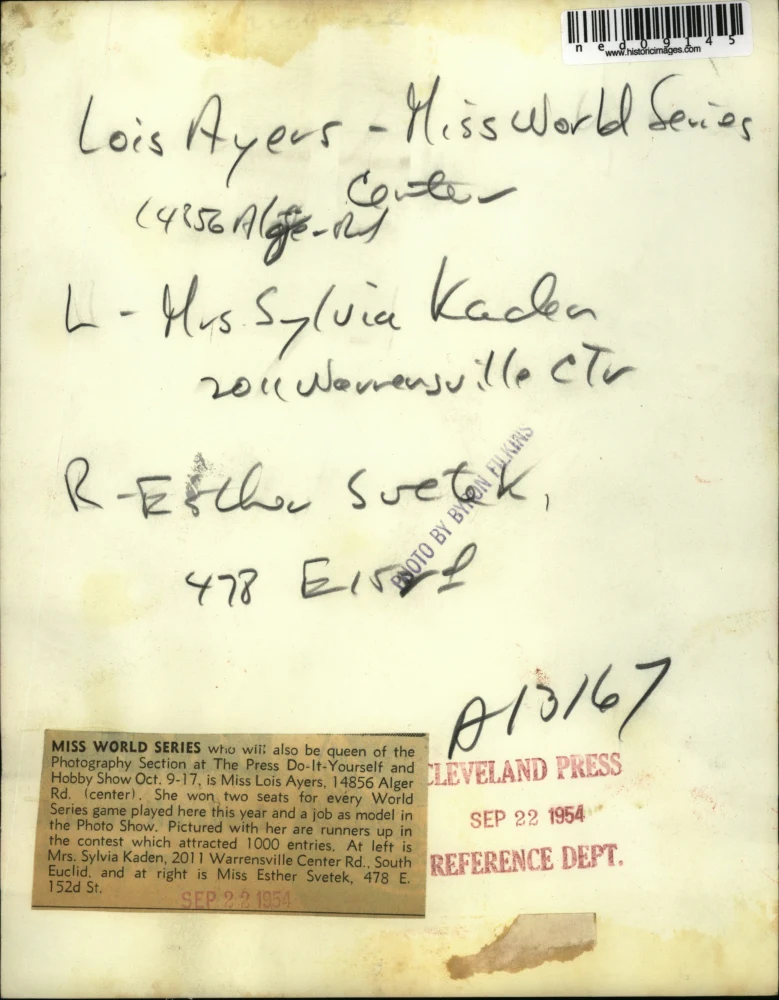 ned09145
www.historicimages.com
Lois Ayers - Miss World Series
Center
14856 Alger Rd
L - Mrs Sylvia Kaden
2011 Warrensville CTr
R - Esther Svetek,
478 E 152d
PHOTO BY BYRON FILKINS
A13167
MISS WORLD SERIES who will also be queen of the
Photography Section at The Press Do-It-Yourself and
Hobby Show Oct. 9-17, is Miss Lois Ayers, 14856 Alger
Rd. (center). She won two seats for every World
Series game played here this year and a job as model in
the Photo Show. Pictured with her are runners up in
the contest which attracted 1000 entries. At left is
Mrs. Sylvia Kaden, 2011 Warrensville Center Rd., South
Euclid, and at right is Miss Esther Svetek, 478 E.
152d St.
SEP 22 1954
CLEVELAND PRESS
SEP 22 1954
REFERENCE DEPT.